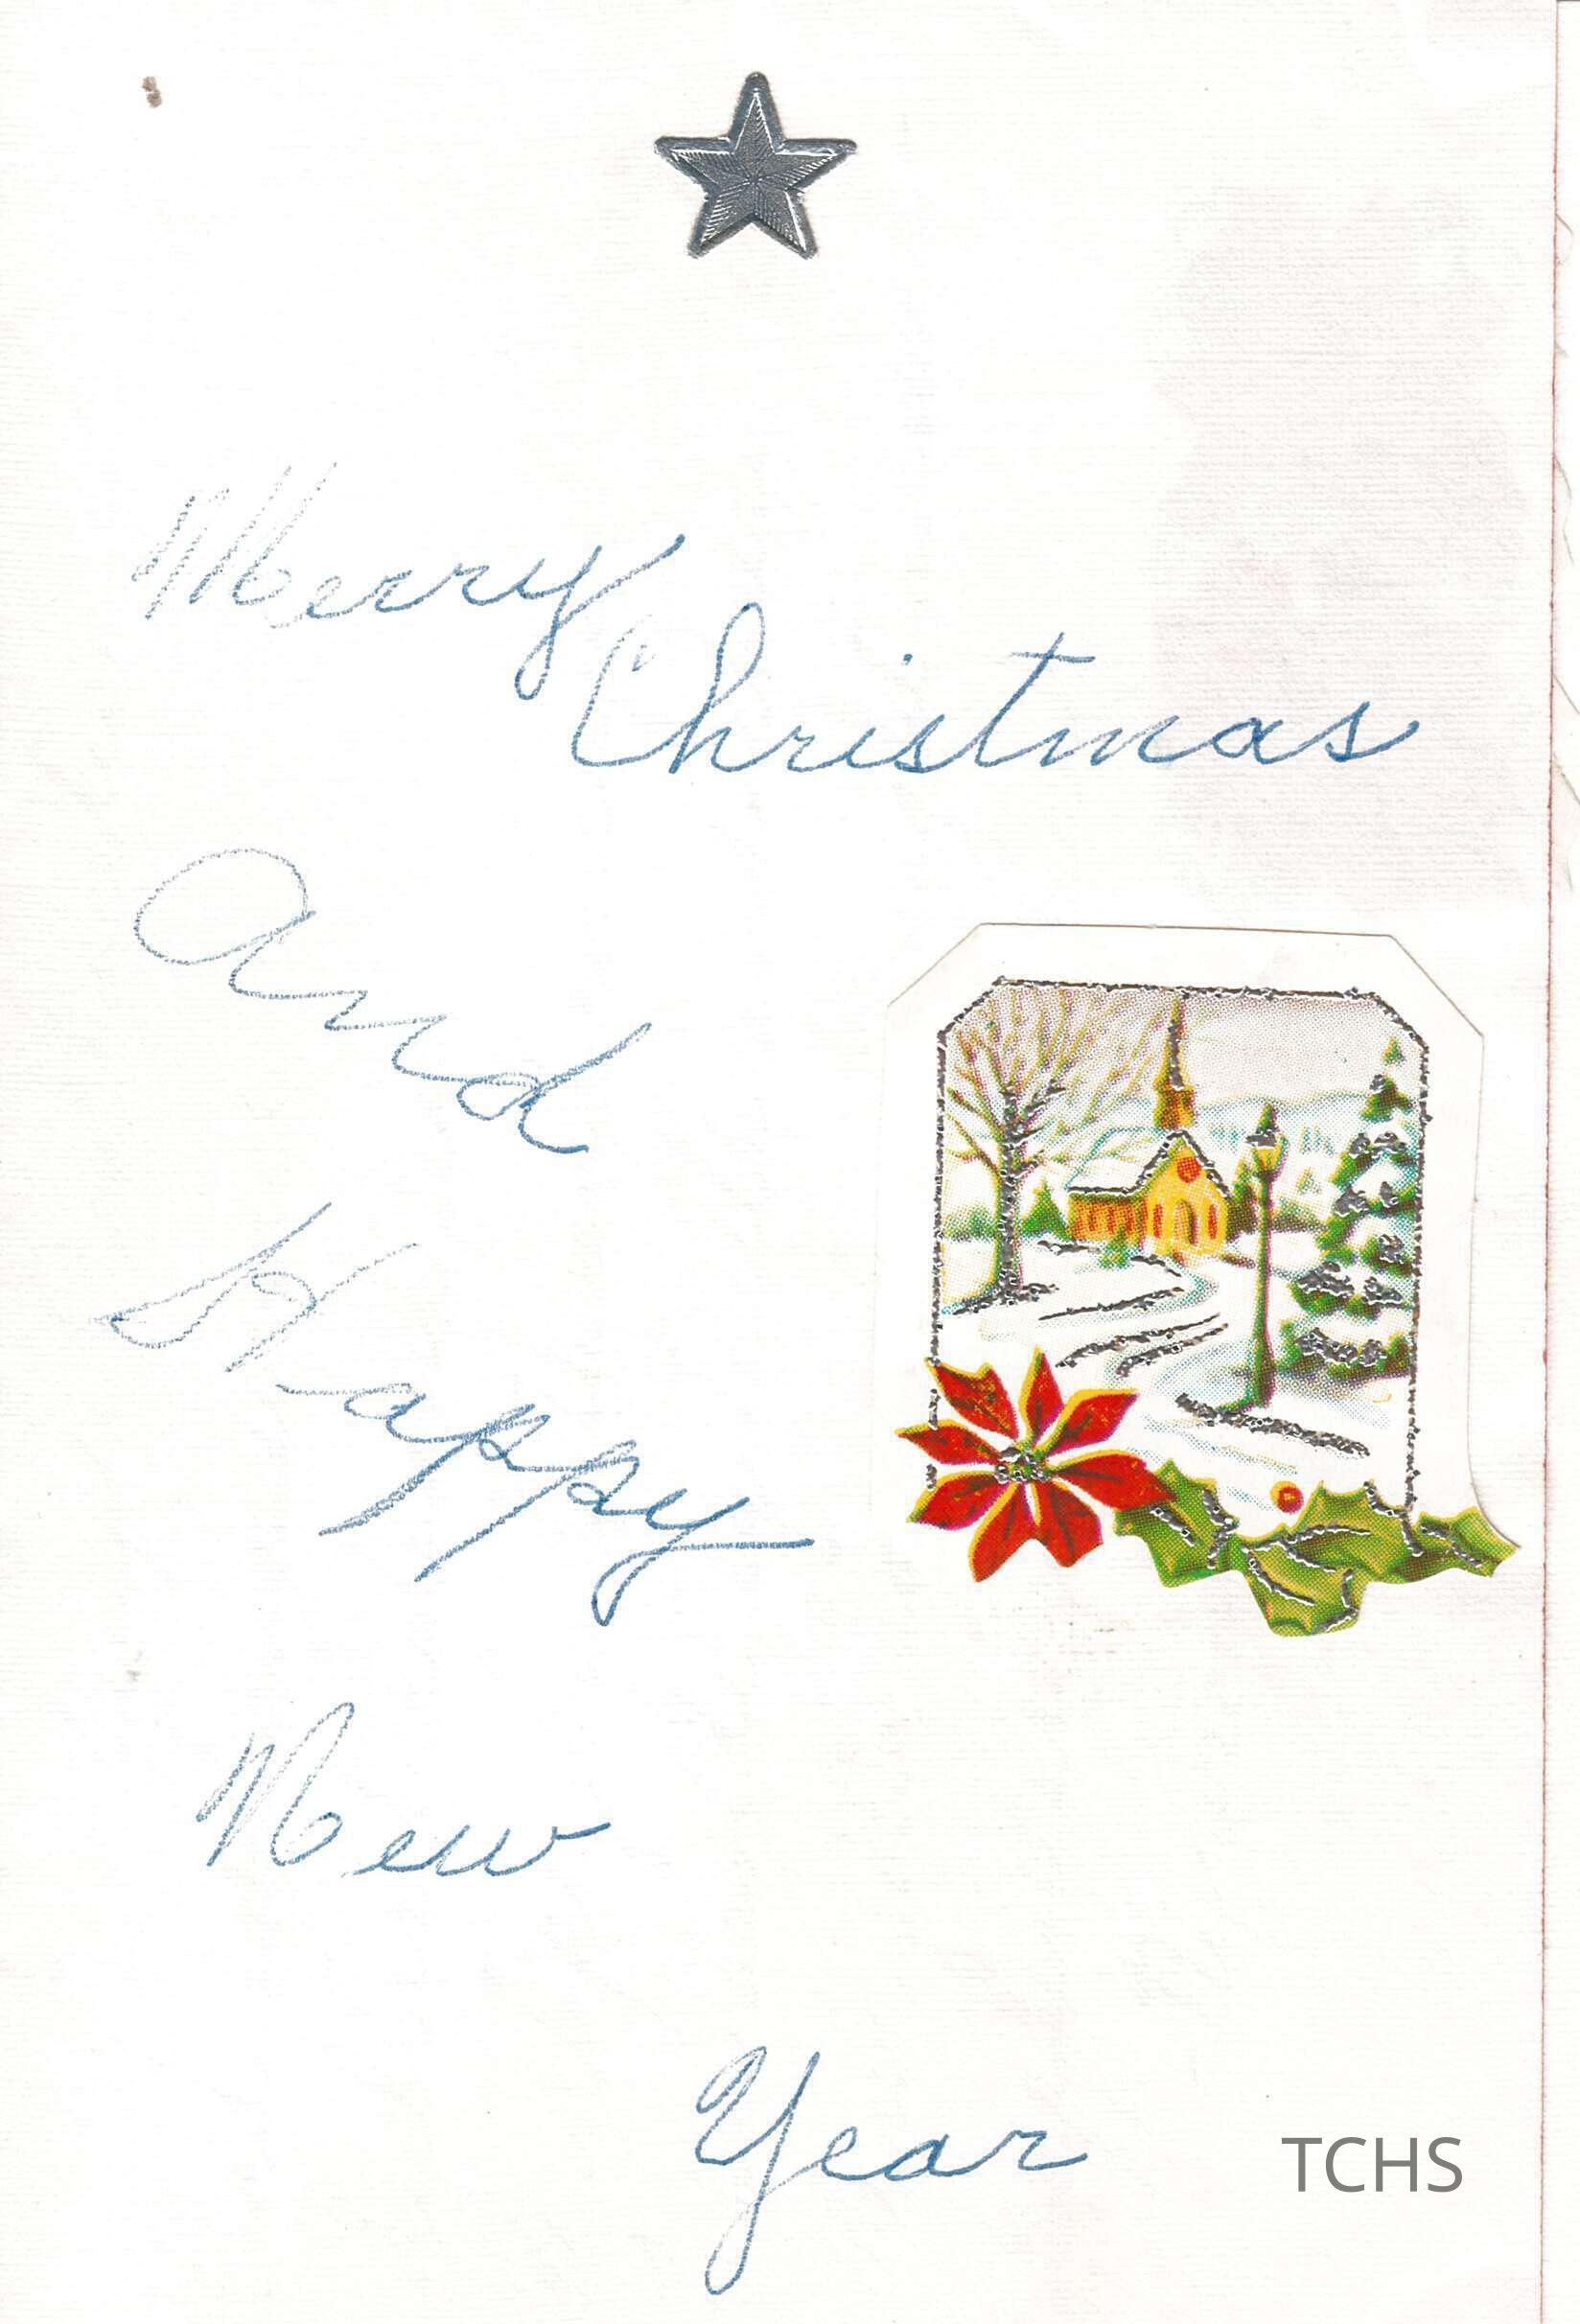 Merry
Christmas
And
Happy
New
Year
TCHS